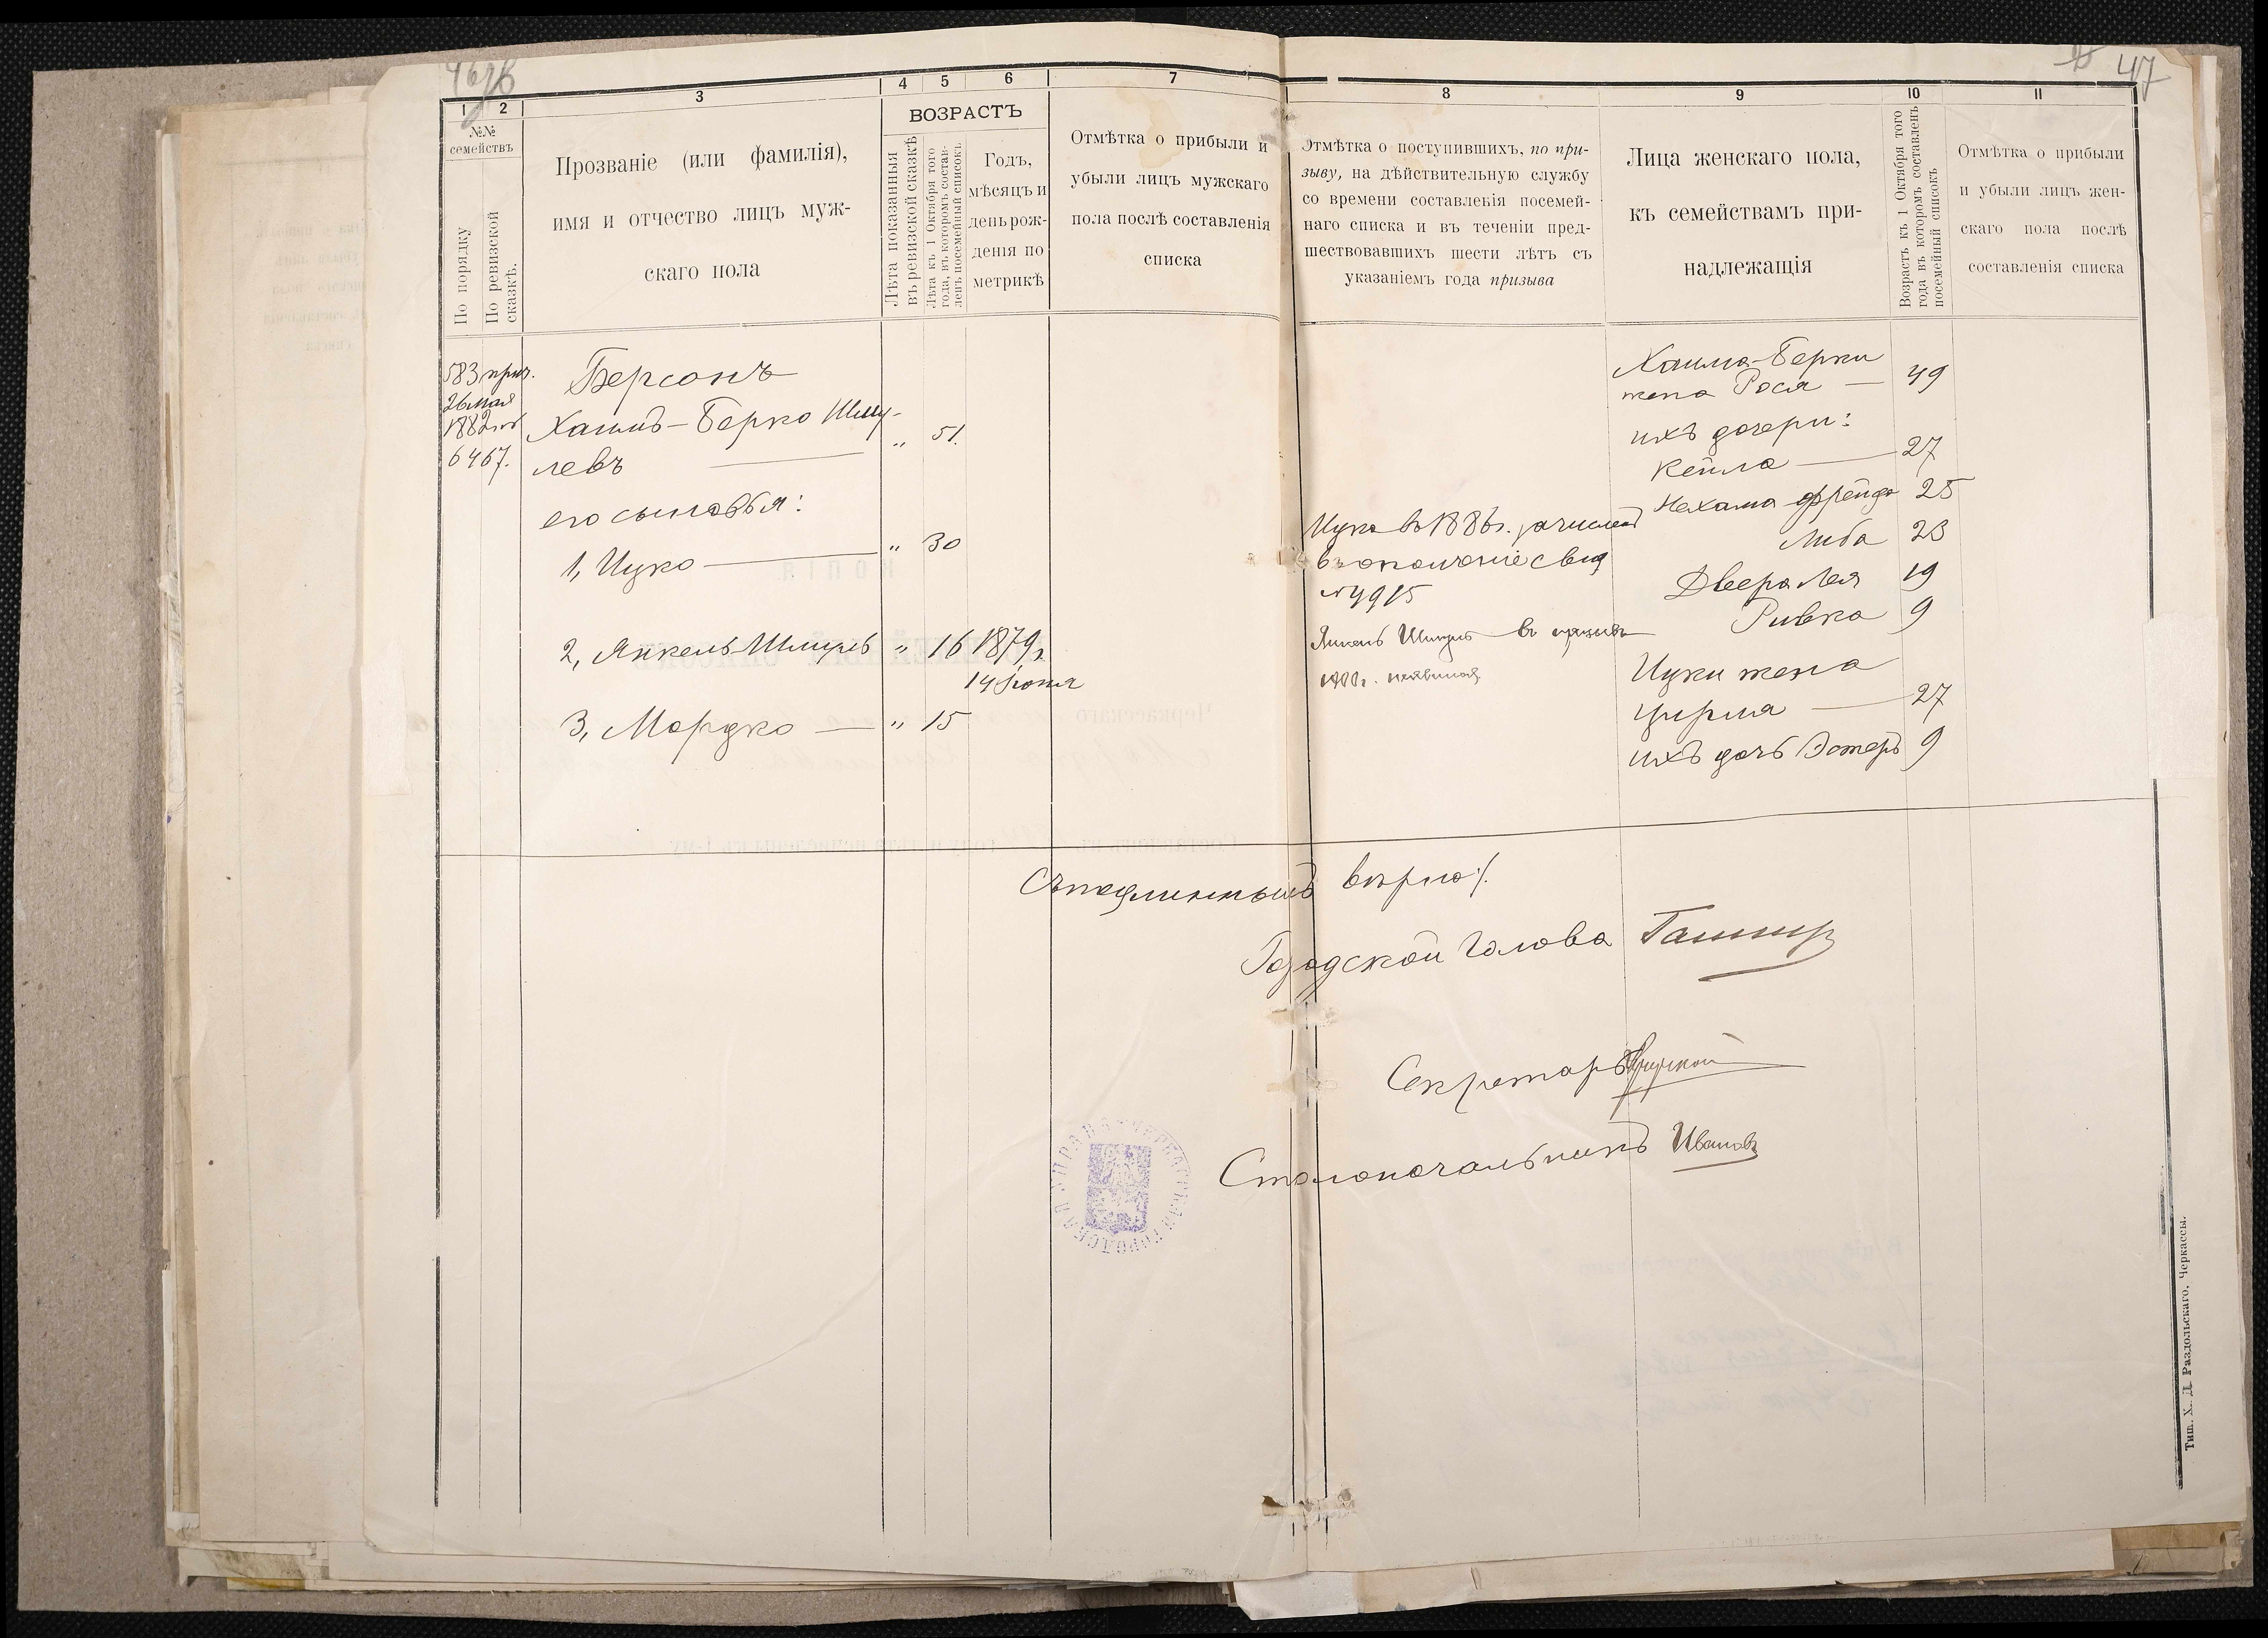 47
1
2
3
4
5
6
7
8
9
10
11
№№
семействъ
По порядку
По ревизской
сказкѣ.
Прозваніе (или фамилія),
имя и отчество лицъ муж-
скаго пола
ВОЗРАСТЪ
Лѣта показанныя
въ ревизской сказкѣ
Лѣта къ 1 Октября того
года, въ которомъ состав-
ленъ посемейный списокъ
Годъ,
мѣсяцъ и
день рож-
денія по
метрикѣ
Отмѣтка о прибыли и
убыли лицъ мужскаго
пола послѣ составленія
списка
Отмѣтка о поступившихъ, по при-
зыву, на дѣйствительную службу
со времени составленія посемей-
наго списка и въ теченіи пред-
шествовавшихъ шести лѣтъ съ
указаніемъ года призыва
Лица женскаго пола,
къ семействамъ при-
надлежащія
Возрастъ къ 1 Октября того
года въ которомъ составленъ
посемейный списокъ
Отмѣтка о прибыли
и убыли лицъ жен-
скаго пола послѣ
составленія списка
583 прич.
26 мая
1882 №
6467.
Берсонъ
Хаимъ-Берко Шму-
левъ — " 51.
его сыновья:
1, Ицко — " 30
2, Янкель Шмиръ " 16 1879 г.
14 Іюня
3, Мордко — " 15
Ицко въ 1886 г. зачисленъ
въ ополченіе свид
№ 4915
Янкель Шмиръ въ призывъ
1900 г. неявился
Хаима-Берки
жена Рося — 49
ихъ дочери:
Кейла — 27
Нехама Фрейда 25
Либа 23
Двейра Лея 19
Ривка 9
Ицки жена
Цирля — 27
ихъ дочь Эстеръ 9
Съ подлиннымъ вѣрно:
Городской Голова
Секретарь
Столоначальникъ Ивановъ
ЧЕРКАССКАЯ ГОРОДСКАЯ УПРАВА
Тип. Х. Д. Раздольскаго, Черкассы.